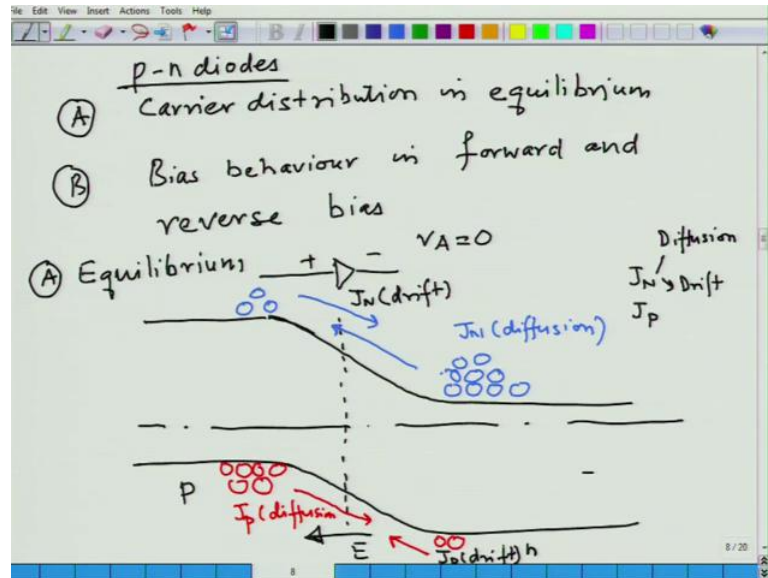 File Edit View Insert Actions Tools Help
p-n diodes
(A) Carrier distribution in equilibrium
(B) Bias behaviour in forward and
reverse bias
(A) Equilibrium + - VA=0
Diffusion
JN(drift)
JN Drift
JN(diffusion)
JP
P
Jp(diffusion
-
E
Jp(drift) n
8/20
8